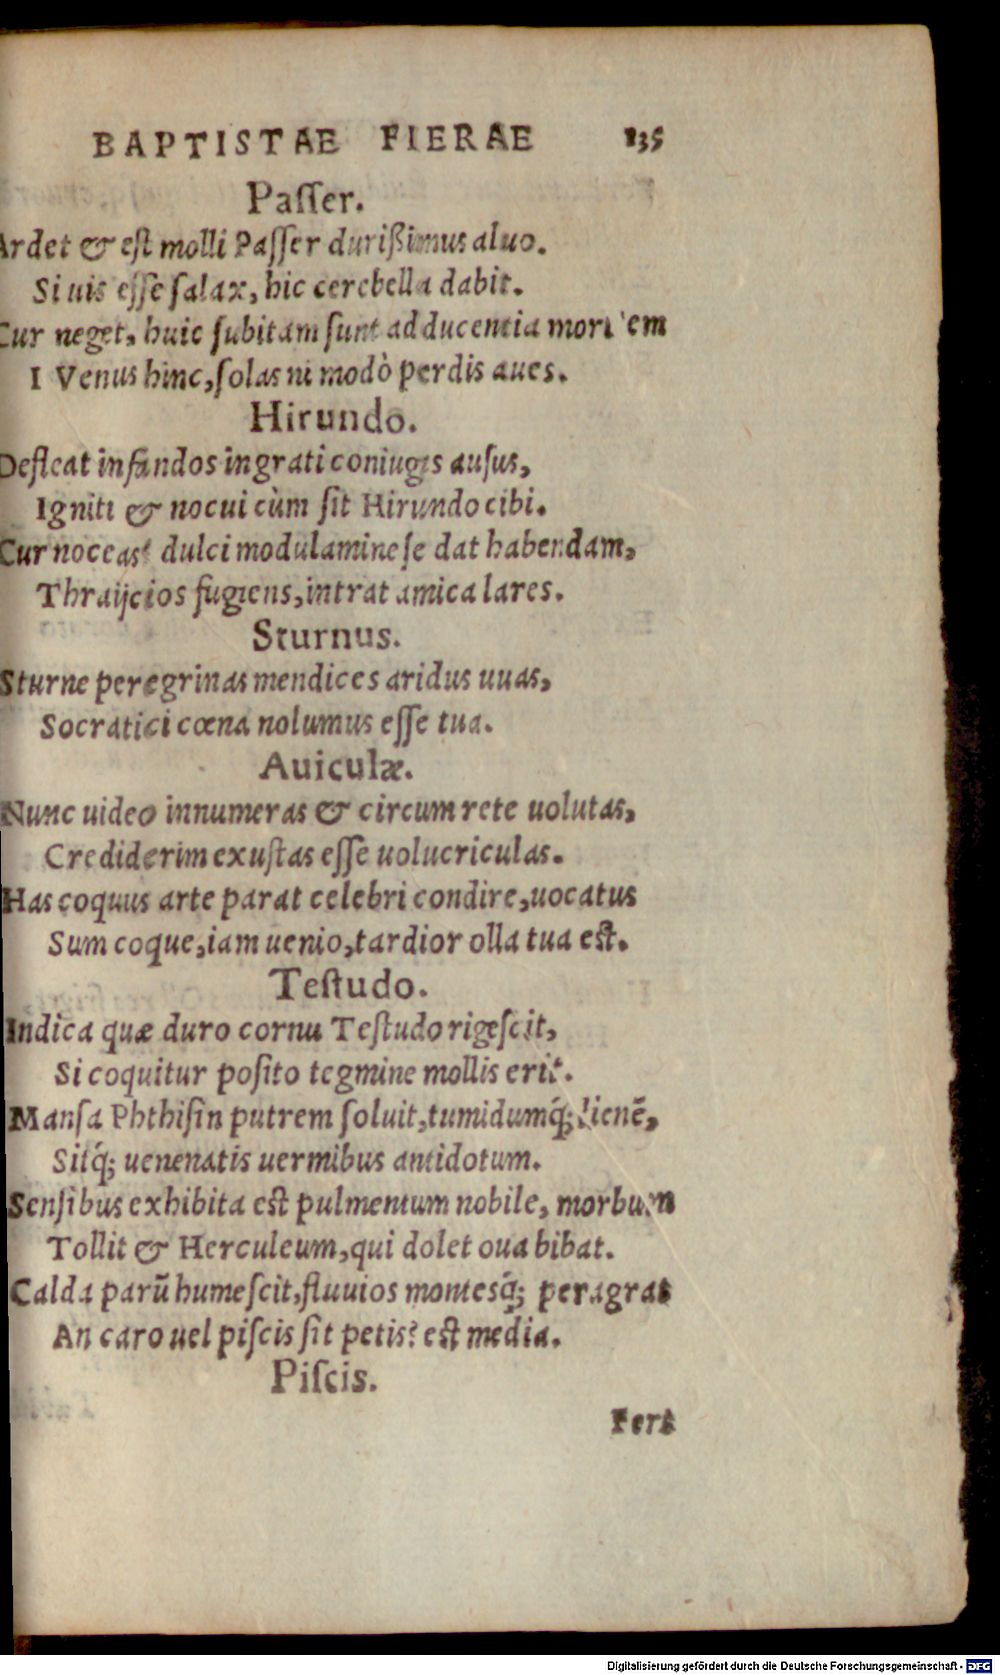 BAPTISTAE FIERAE 135
Paſſer.
Ardet & eſt molli Paſſer durißimus aluo.
Si uis eſſe ſalax, hic cerebella dabit.
Cur neget, huic ſubitam ſunt adducentia mortem
I Venus hinc, ſolas ni modò perdis aues.
Hirundo.
Defleat infandos ingrati coniugis auſus,
Igniti & nocui cùm ſit Hirundo cibi.
Cur noceas? dulci modulamine ſe dat habendam,
Thraijcios fugiens, intrat amica lares.
Sturnus.
Sturne peregrinas mendices aridus uuas,
Socratici cœna nolumus eſſe tua.
Auiculæ.
Nunc uideo innumeras & circum rete uolutas,
Crediderim exuſtas eſſe uolucriculas.
Has coquus arte parat celebri condire, uocatus
Sum coque, iam uenio, tardior olla tua eſt.
Teſtudo.
Indica quæ duro cornu Teſtudo rigeſcit,
Si coquitur poſito tegmine mollis erit.
Manſa Phthiſin putrem ſoluit, tumidumq́; lienē,
Sitq́; uenenatis uermibus antidotum.
Senſibus exhibita eſt pulmentum nobile, morbum
Tollit & Herculeum, qui dolet oua bibat.
Calda parū humeſcit, fluuios montesq́; peragrat
An caro uel piſcis ſit petis? eſt media.
Piſcis.
Fert
Digitalisierung gefördert durch die Deutsche Forschungsgemeinschaft - DFG